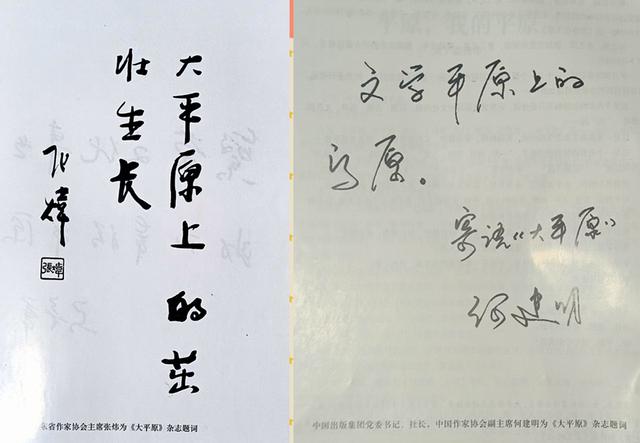 大平原上的茁
壮生长
张炜
东省作家协会主席张炜为《大平原》杂志题词
平原，我的平原
文学平原上的
高原。
寄语《大平原》
何建明
中国出版集团党委书记、社长，中国作家协会副主席何建明为《大平原》杂志题词